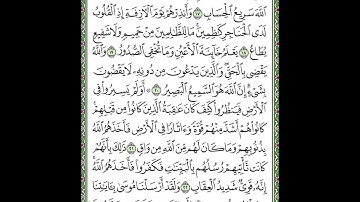 اللَّهَ سَرِيعُ الْحِسَابِ ﴿١٧﴾ وَأَنذِرْهُمْ يَوْمَ الْآزِفَةِ إِذِ الْقُلُوبُ
لَدَى الْحَنَاجِرِ كَاظِمِينَ ۚ مَا لِلظَّالِمِينَ مِنْ حَمِيمٍ وَلَا شَفِيعٍ
يُطَاعُ ﴿١٨﴾ يَعْلَمُ خَائِنَةَ الْأَعْيُنِ وَمَا تُخْفِي الصُّدُورُ ﴿١٩﴾ وَاللَّهُ
يَقْضِي بِالْحَقِّ ۖ وَالَّذِينَ يَدْعُونَ مِن دُونِهِ لَا يَقْضُونَ
بِشَيْءٍ ۗ إِنَّ اللَّهَ هُوَ السَّمِيعُ الْبَصِيرُ ﴿٢٠﴾ أَوَلَمْ يَسِيرُوا فِي
الْأَرْضِ فَيَنظُرُوا كَيْفَ كَانَ عَاقِبَةُ الَّذِينَ كَانُوا مِن قَبْلِهِمْ ۚ
كَانُوا هُمْ أَشَدَّ مِنْهُمْ قُوَّةً وَآثَارًا فِي الْأَرْضِ فَأَخَذَهُمُ اللَّهُ
بِذُنُوبِهِمْ وَمَا كَانَ لَهُم مِّنَ اللَّهِ مِن وَاقٍ ﴿٢١﴾ ذَٰلِكَ بِأَنَّهُمْ
كَانَت تَّأْتِيهِمْ رُسُلُهُم بِالْبَيِّنَاتِ فَكَفَرُوا فَأَخَذَهُمُ اللَّهُ ۚ
إِنَّهُ قَوِيٌّ شَدِيدُ الْعِقَابِ ﴿٢٢﴾ وَلَقَدْ أَرْسَلْنَا مُوسَىٰ بِآيَاتِنَا